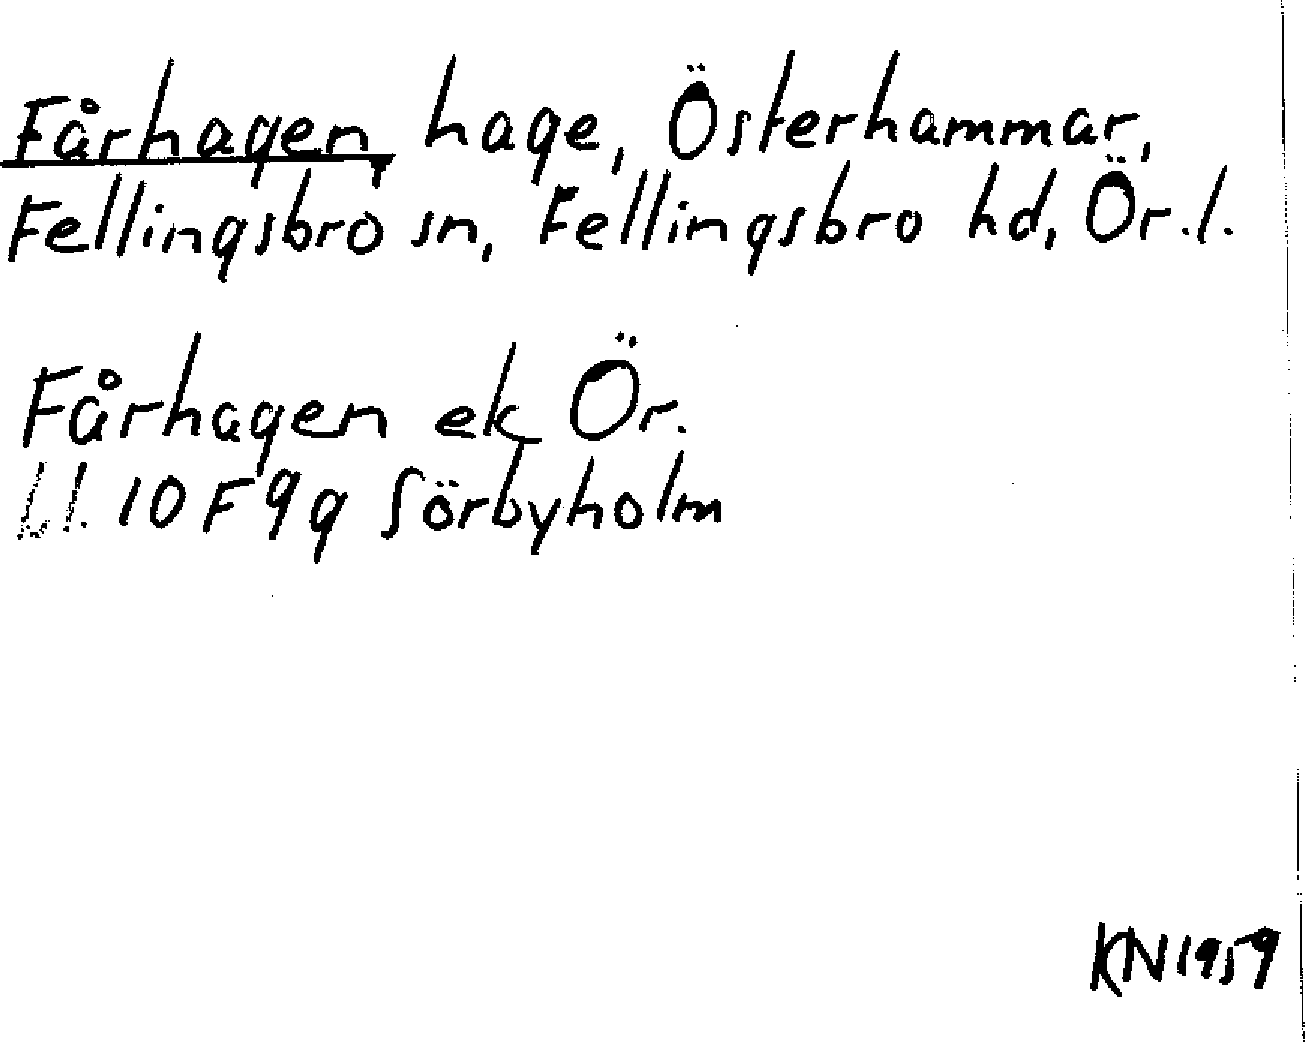 Fårhagen, hage, Österhammar,
Fellingsbro sn, Fellingsbro hd, Ör.l.
Fårhagen ek Ör.
10 F 9g Sörbyholm
KN 1959